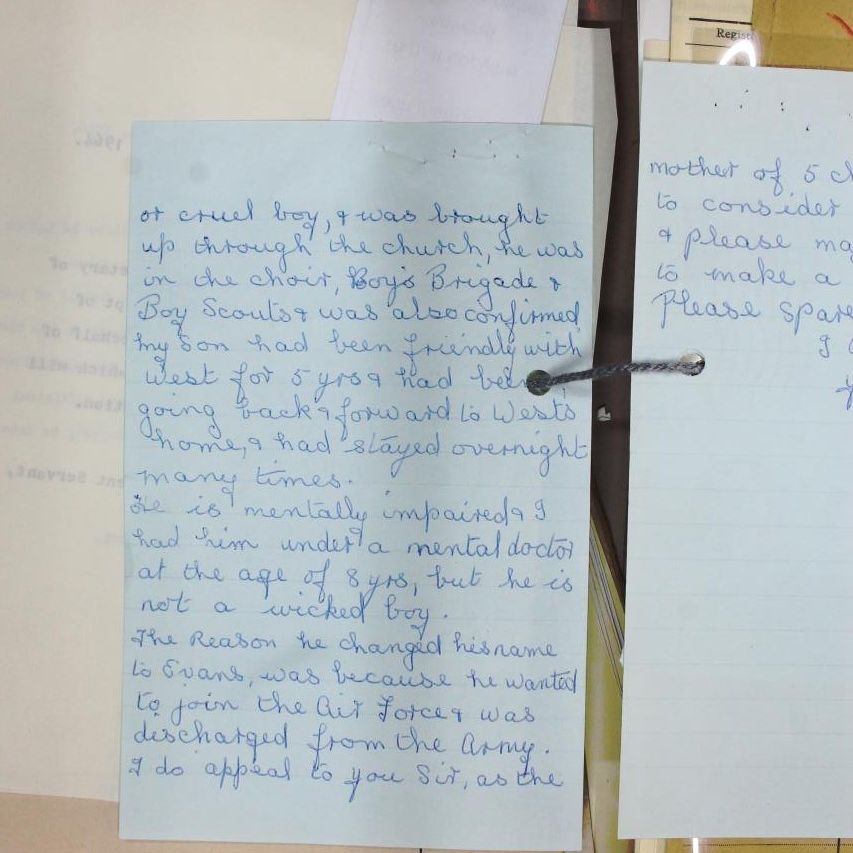 or cruel boy, & was brought
up through the church, he was
in the choir, Boy's Brigade &
Boy Scouts & was also confirmed
my son had been friendly with
West for 5 yrs & had been
going back & forward to Wests
home, & had stayed overnight
many times.
He is mentally impaired & I
had him under a mental doctor
at the age of 8 yrs, but he is
not a wicked boy.
The Reason he changed his name
to Evans, was because he wanted
to join the Air Force & was
discharged from the Army.
I do appeal to you Sir, as the
Regist
mother of 5 ch
to consider
& please ma
to make a
Please spare
I
1964.
etary of
pt of
behalf of
which will
tion.
ent Servant,